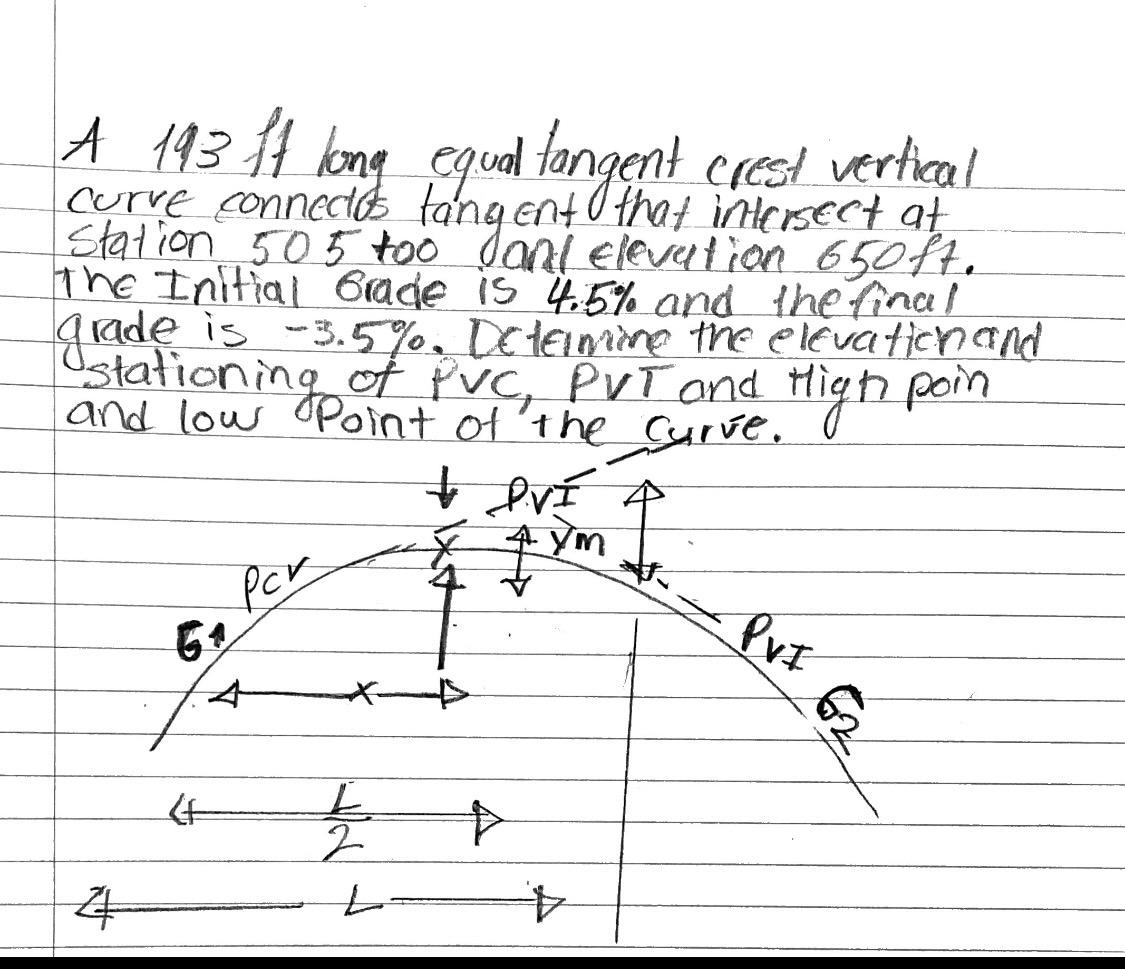 A 193 ft long equal tangent crest vertical
curve connects tangent that intersect at
station 505 too and elevation 650ft.
The Initial Grade is 4.5% and the final
grade is -3.5%. Determine the elevation and
stationing of PVC, PVT and High poin
and low Point of the curve.
PVI
Ym
PCV
G1
PVI
x
G2
L
2
L